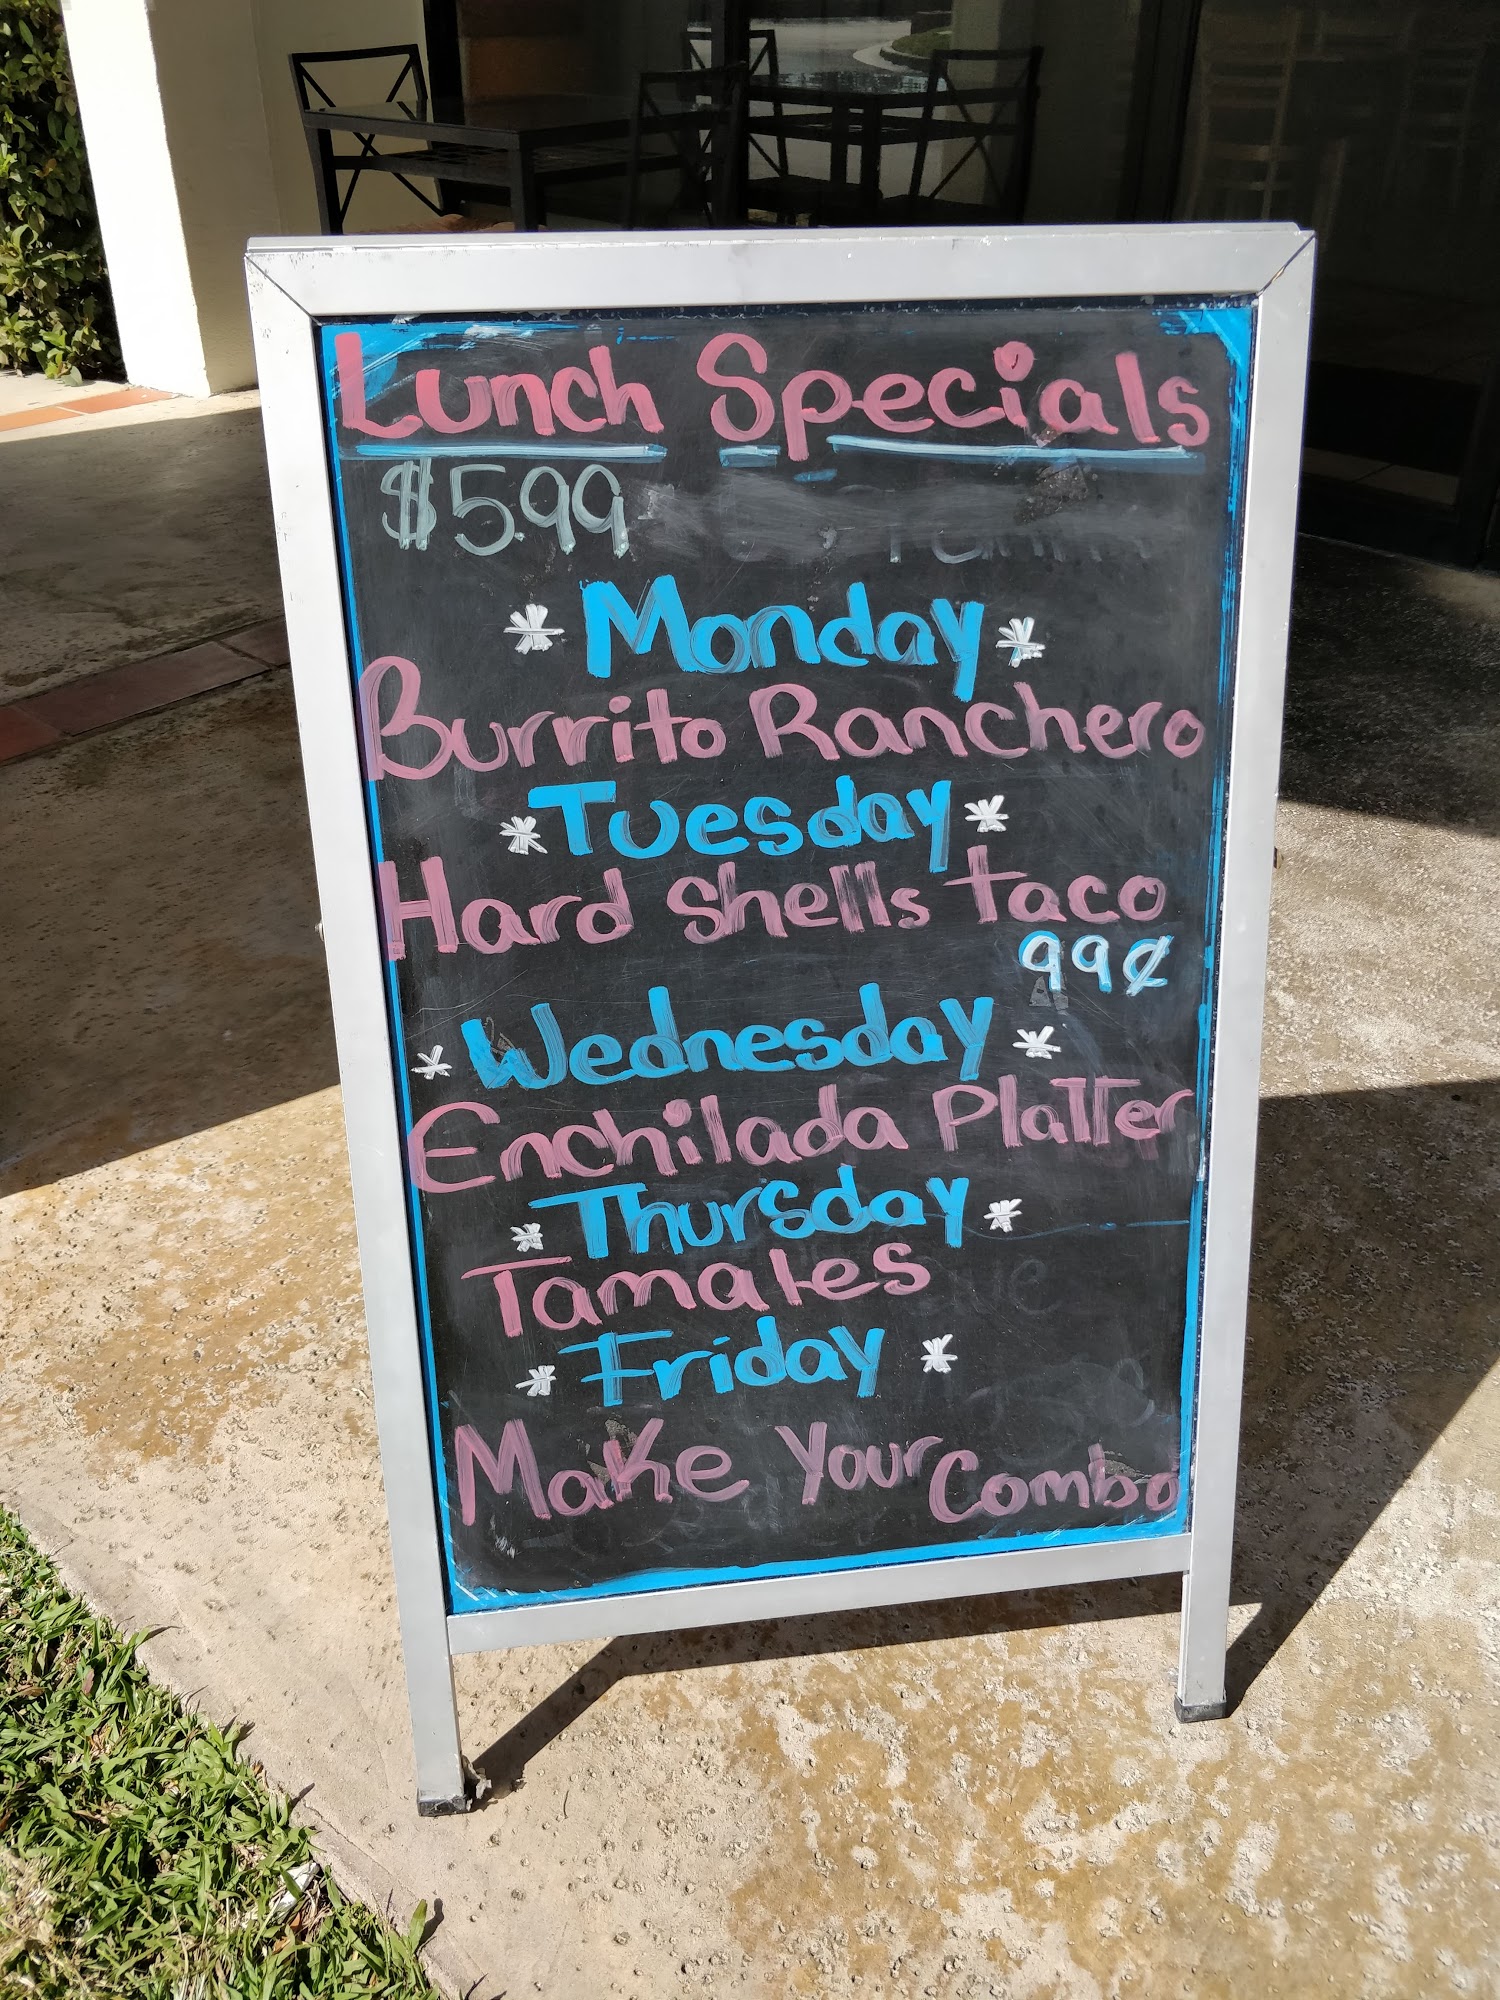 Lunch Specials
$5.99
* Monday *
Burrito Ranchero
* Tuesday *
Hard Shells Taco
99¢
* Wednesday *
Enchilada Platter
* Thursday *
Tamales
* Friday *
Make Your Combo